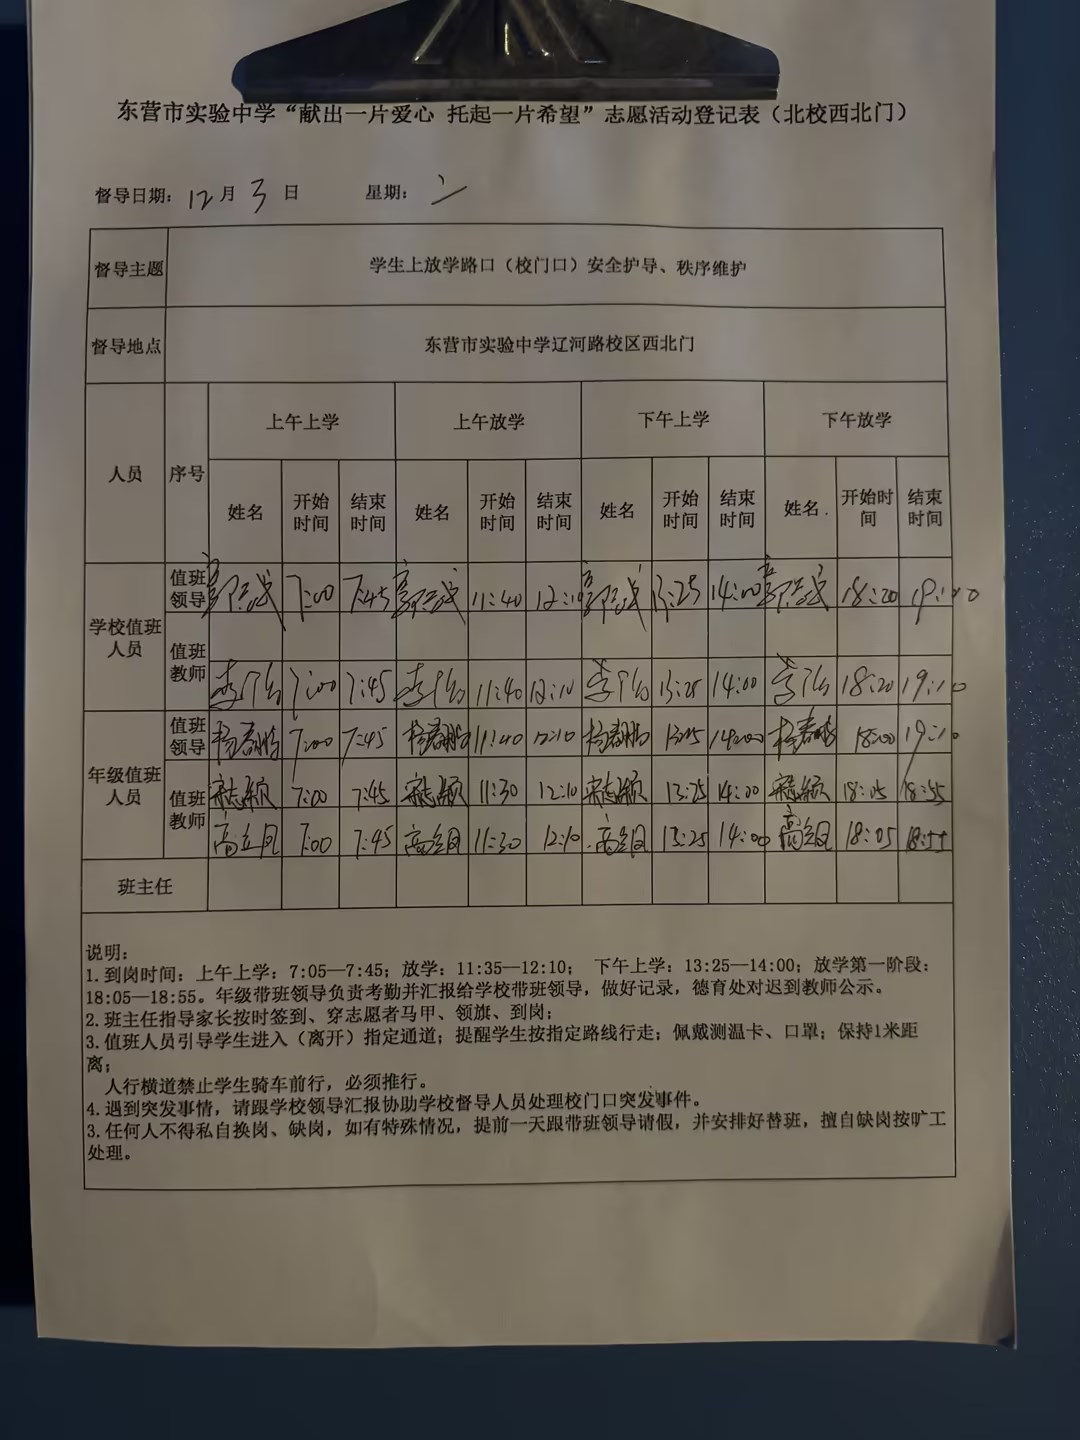 东营市实验中学“献出一片爱心 托起一片希望”志愿活动登记表（北校西北门）
督导日期：12月3日 星期：二
督导主题 学生上放学路口（校门口）安全护导、秩序维护
督导地点 东营市实验中学辽河路校区西北门
人员 序号 上午上学 上午放学 下午上学 下午放学
姓名 开始时间 结束时间 姓名 开始时间 结束时间 姓名 开始时间 结束时间 姓名 开始时间 结束时间
学校值班人员 值班领导 7:00 7:45 11:40 12:10 13:25 14:00 18:20 19:10
值班教师 7:00 7:45 11:40 12:10 13:25 14:00 18:20 19:10
年级值班人员 值班领导 杨春鹏 7:00 7:45 杨春鹏 11:40 12:10 杨春鹏 13:25 14:00 杨春鹏 18:00 19:10
值班教师 宋志颖 7:00 7:45 宋志颖 11:30 12:10 宋志颖 13:25 14:00 宋志颖 18:05 18:55
7:00 7:45 11:30 12:10 13:25 14:00 18:05 18:55
班主任
说明：
1.到岗时间：上午上学：7:05—7:45；放学：11:35—12:10； 下午上学：13:25—14:00；放学第一阶段：
18:05—18:55。年级带班领导负责考勤并汇报给学校带班领导，做好记录，德育处对迟到教师公示。
2.班主任指导家长按时签到、穿志愿者马甲、领旗、到岗；
3.值班人员引导学生进入（离开）指定通道；提醒学生按指定路线行走；佩戴测温卡、口罩；保持1米距
离；
人行横道禁止学生骑车前行，必须推行。
4.遇到突发事情，请跟学校领导汇报协助学校督导人员处理校门口突发事件。
3.任何人不得私自换岗、缺岗，如有特殊情况，提前一天跟带班领导请假，并安排好替班，擅自缺岗按旷工
处理。